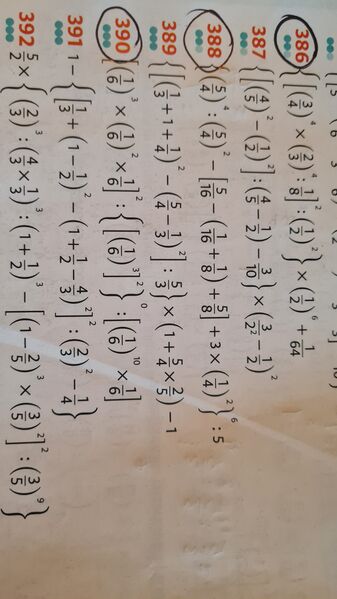 386 {[(3/4)⁴ × (2/3)⁴ : 1/8]² : (1/2)²} × (1/2)⁶ + 1/64
387 {[(4/5)² − (1/2)²] : (4/5 − 1/2) − 3/10} × (3/2² − 1/2)²
388 {(5/4)⁴ : (5/4)² − [5/16 − (1/16 + 1/8) + 5/8] + 3 × (1/4)²}⁶ : 5
389 {[(1/3 + 1 + 1/4)² − (5/4 − 1/3)²] : 5/3} × (1 + 5/4 × 2/5) − 1
390 [(1/6)³ × (1/6)² × 1/6]² : {[(1/6)³]²}⁰ : [(1/6)¹⁰ × 1/6]
391 1 − {[1/3 + (1 − 1/2)² − (1 + 1/2 − 4/3)²]² : (2/3)² − 1/4}
392 5/2 × {(2/3)³ : (4/3 × 1/3)³ : (1 + 1/2)³ − [(1 − 2/5)³ × (3/5)²]² : (3/5)⁹}